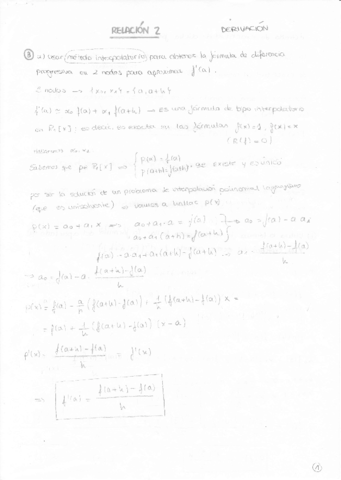 RELACIÓN 2 DERIVACIÓN
a) Usar método interpolatorio para obtener la fórmula de diferencia
progresiva en 2 nodos para aproximar f'(a).
2 nodos → {x₁, x₂} = {a, a+h}
f'(a) ≈ α₁ f(a) + α₂ f(a+h) → es una fórmula de tipo interpolatorio
en P₁[x]: es decir, es exacta en las fórmulas f(x)=1, f(x)=x
(E(f)=0)
Sabemos que p∈P₁[x] → { p(a) = f(a)
p(a+h) = f(a+h) existe y es único
por ser la solución de un problema de interpolación polinomial
(que es unisolvente) → vamos a hallar p(x).
p(x) = a₀ + a₁ x → a₀ + a₁ · a = f(a) } → a₀ = f(a) - a · a₁
a₀ + a₁ (a+h) = f(a+h)
f(a) - a a₁ + a₁ (a+h) = f(a+h) a₁ = f(a+h) - f(a) / h
→ a₀ = f(a) - a · f(a+h) - f(a) / h
p(x) = f(a) - a/h (f(a+h) - f(a)) + 1/h (f(a+h) - f(a)) x =
= f(a) + 1/h (f(a+h) - f(a)) (x - a)
p'(x) = f(a+h) - f(a) / h ≈ f'(x)
→ f'(a) ≈ f(a+h) - f(a) / h
①